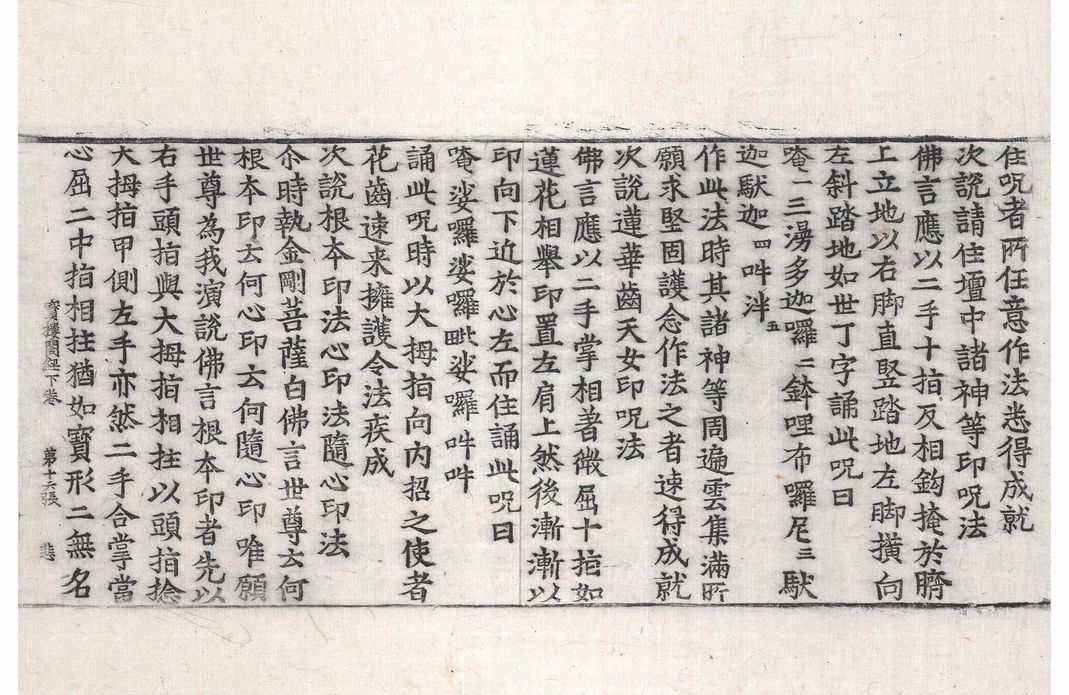 住呪者所任意作法悉得成就
次說請住壇中諸神等印呪法
佛言應以二手十指反相鉤掩於臍
上立地以右脚直竪踏地左脚橫向
左斜踏地如世丁字誦此呪曰
唵一三湯多迦囉二鉢哩布囉尼三馱
迦馱迦四吽泮五
作此法時其諸神等周遍雲集滿所
願求堅固護念作法之者速得成就
次說蓮華齒天女印呪法
佛言應以二手掌相著微屈十指如
蓮花相擧印置左肩上然後漸漸以
印向下近於心左而住誦此呪曰
唵娑囉娑囉毗娑囉吽吽
誦此呪時以大拇指向內招之使者
花齒速来擁護令法疾成
次說根本印法心印法隨心印法
尒時執金剛菩薩白佛言世尊云何
根本印云何心印云何隨心印唯願
世尊為我演說佛言根本印者先以
右手頭指與大拇指相拄以頭指捻
大拇指甲側左手亦然二手合掌當
心屈二中指相拄猶如寶形二無名
寶樓閣經下卷 第十六張 悲